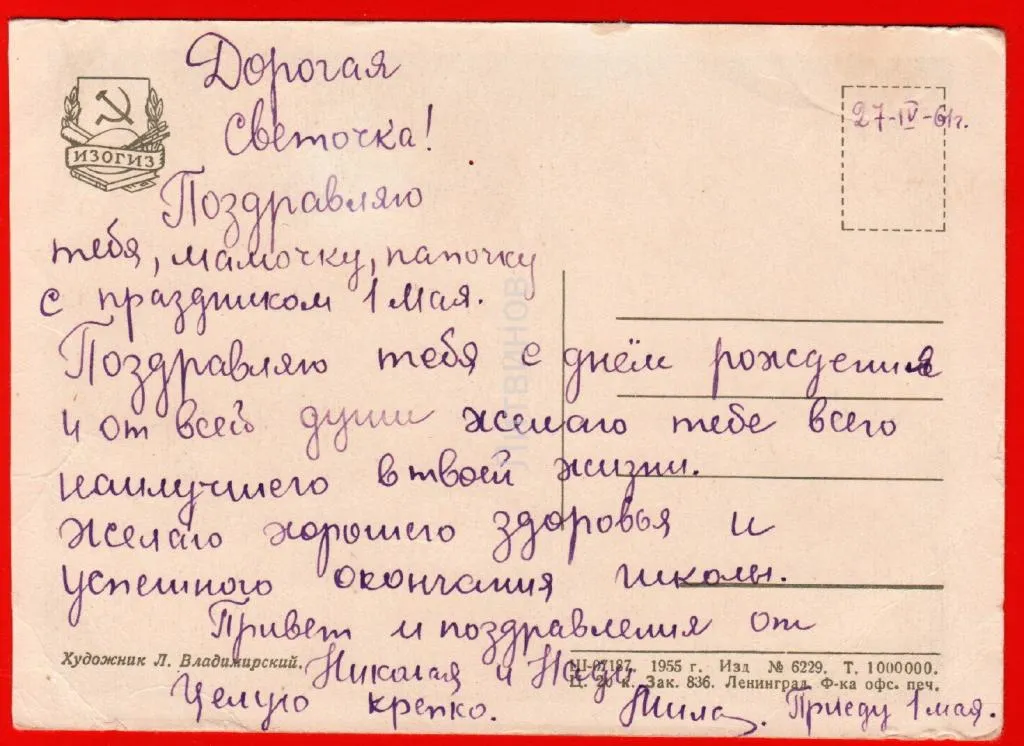 Дорогая
Светочка!
27-IV-61г.
ИЗОГИЗ
Поздравляю
тебя, мамочку, папочку
с праздником 1 Мая.
Поздравляю тебя с днём рождения
и от всей души желаю тебе всего
наилучшего в твоей жизни.
Желаю хорошего здоровья и
успешного окончания школы.
Привет и поздравления от
Николая и Нади
Целую крепко. Мила. Приеду 1 мая.
Художник Л. Владимирский.
Ш-07187. 1955 г. Изд № 6229. Т. 1000000.
Ц. 20 к. Зак. 836. Ленинград. Ф-ка офс. печ.
ЛИТВИНОВ